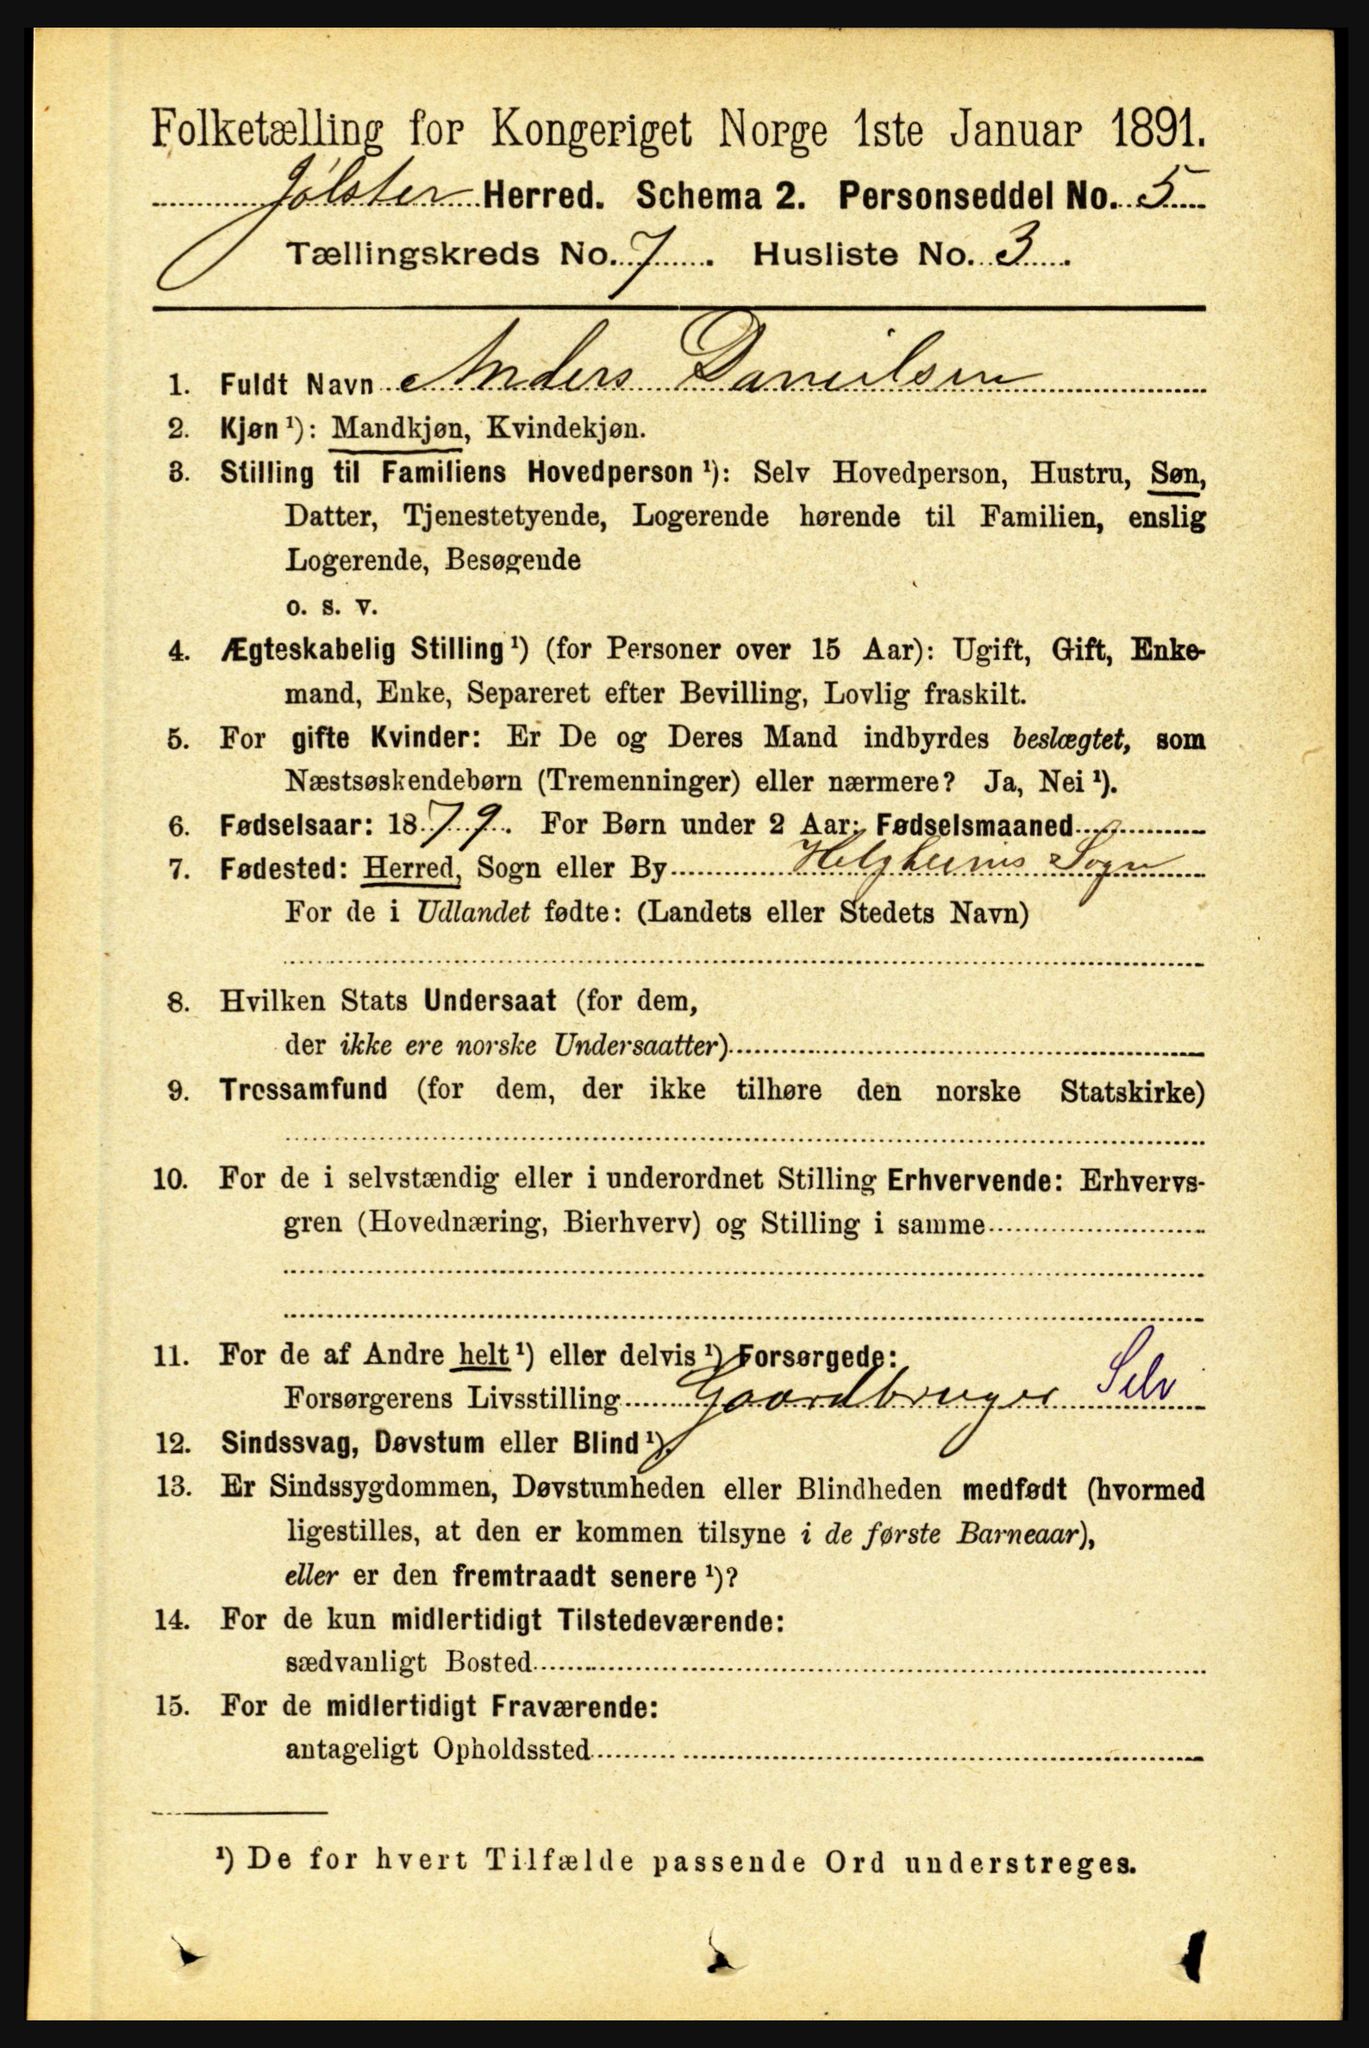 Folketælling for Kongeriget Norge 1ste Januar 1891.
Jølster Herred. Schema 2. Personseddel No. 5
Tællingskreds No. 7. Husliste No. 3.
1. Fuldt Navn Anders Danielsen
2. Kjøn ¹): Mandkjøn, Kvindekjøn.
3. Stilling til Familiens Hovedperson ¹): Selv Hovedperson, Hustru, Søn,
Datter, Tjenestetyende, Logerende hørende til Familien, enslig
Logerende, Besøgende
o. s. v.
4. Ægteskabelig Stilling ¹) (for Personer over 15 Aar): Ugift, Gift, Enke-
mand, Enke, Separeret efter Bevilling, Lovlig fraskilt.
5. For gifte Kvinder: Er De og Deres Mand indbyrdes beslægtet, som
Næstsøskendebørn (Tremenninger) eller nærmere? Ja, Nei ¹).
6. Fødselsaar: 1879. For Børn under 2 Aar: Fødselsmaaned
7. Fødested: Herred, Sogn eller By Helgheims Sogn
For de i Udlandet fødte: (Landets eller Stedets Navn)
8. Hvilken Stats Undersaat (for dem,
der ikke ere norske Undersaatter)
9. Trossamfund (for dem, der ikke tilhøre den norske Statskirke)
10. For de i selvstændig eller i underordnet Stilling Erhvervende: Erhvervs-
gren (Hovednæring, Bierhverv) og Stilling i samme
11. For de af Andre helt ¹) eller delvis ¹) Forsørgede:
Forsørgerens Livsstilling Gaardbruger Selv
12. Sindssvag, Døvstum eller Blind ¹).
13. Er Sindssygdommen, Døvstumheden eller Blindheden medfødt (hvormed
ligestilles, at den er kommen tilsyne i de første Barneaar),
eller er den fremtraadt senere ¹)?
14. For de kun midlertidigt Tilstedeværende:
sædvanligt Bosted
15. For de midlertidigt Fraværende:
antageligt Opholdssted
¹) De for hvert Tilfælde passende Ord understreges.